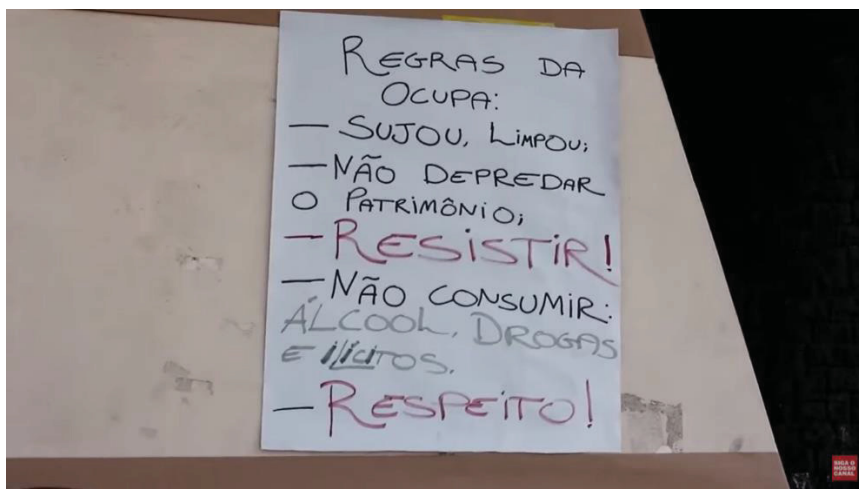 REGRAS DA
OCUPA:
— SUJOU, LIMPOU;
— NÃO DEPREDAR
O PATRIMÔNIO;
— RESISTIR!
— NÃO CONSUMIR:
ÁLCOOL, DROGAS
E ILÍCITOS.
— RESPEITO!
SIGA O
NOSSO
CANAL